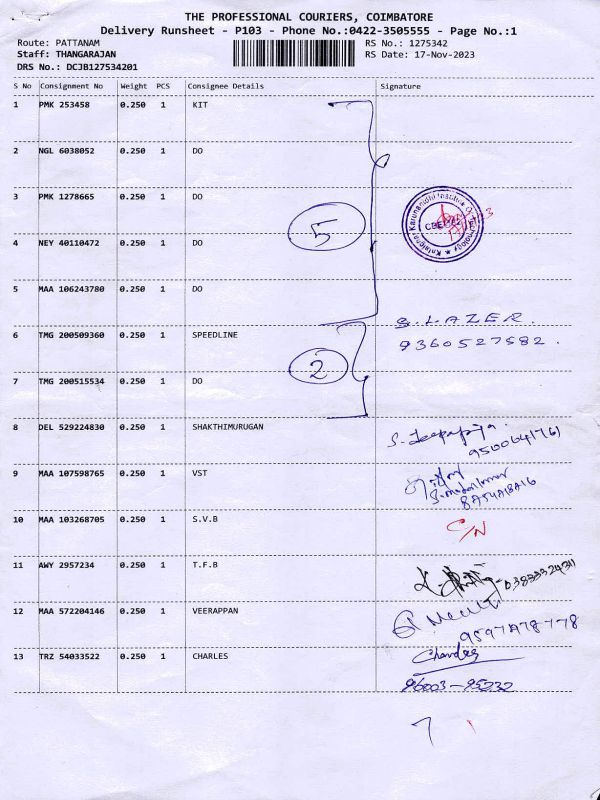 THE PROFESSIONAL COURIERS, COIMBATORE
Delivery Runsheet - P103 - Phone No.:0422-3505555 - Page No.:1
Route: PATTANAM RS No.: 1275342
Staff: THANGARAJAN RS Date: 17-Nov-2023
DRS No.: DCJB127534201
S No Consignment No Weight PCS Consignee Details Signature
1 PMK 253458 0.250 1 KIT
2 NGL 6038052 0.250 1 DO
3 PMK 1278665 0.250 1 DO
5
4 NEY 40110472 0.250 1 DO
5 MAA 106243780 0.250 1 DO
S. LAZER.
6 TMG 200509360 0.250 1 SPEEDLINE
9360527582.
2
7 TMG 200515534 0.250 1 DO
8 DEL 529224830 0.250 1 SHAKTHIMURUGAN
9500641761
9 MAA 107598765 0.250 1 VST
10 MAA 103268705 0.250 1 S.V.B
C/N
11 AWY 2957234 0.250 1 T.F.B
12 MAA 572204146 0.250 1 VEERAPPAN
13 TRZ 54033522 0.250 1 CHARLES
Charles
96003-95232